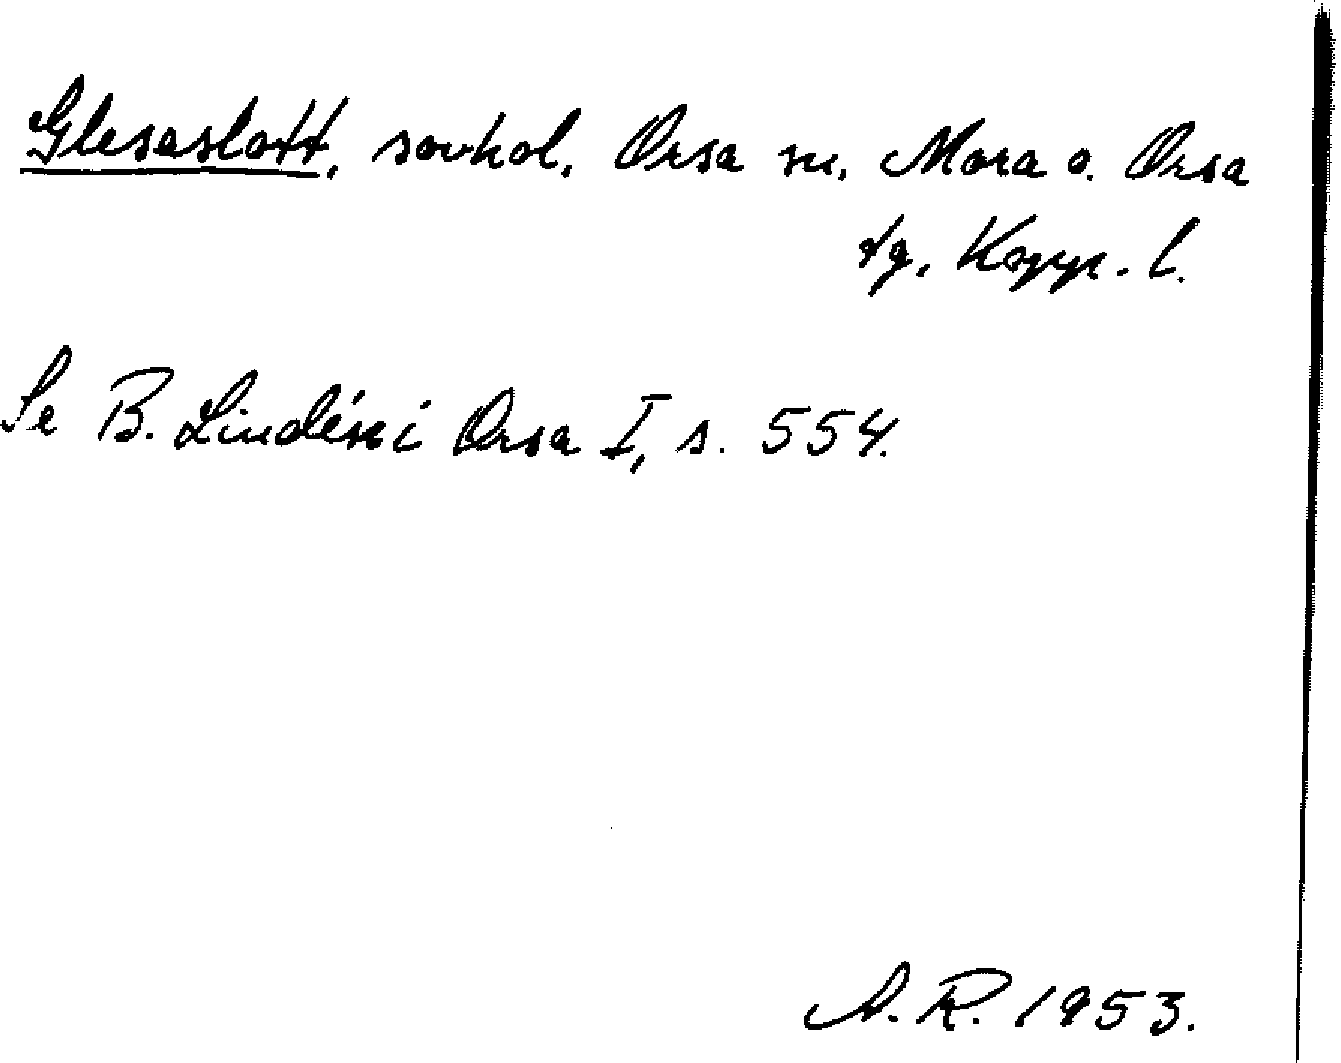 Glesaslott, sovhol, Orsa sn, Mora o. Orsa
tg, Kopp. l.
Se B. Lindén i Orsa I, s. 554.
A. R. 1953.